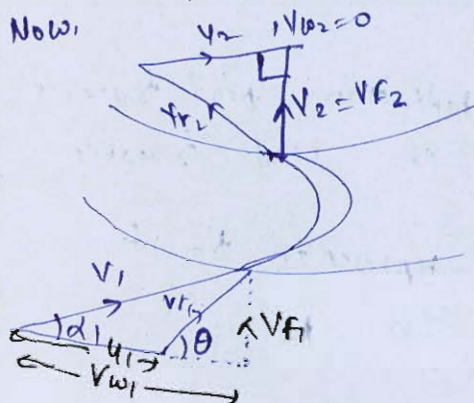 Now,
u2 , Vw2 = 0
Vr2
V2 = Vf2
V1
Vr1
α1
u1
θ
Vf1
Vw1